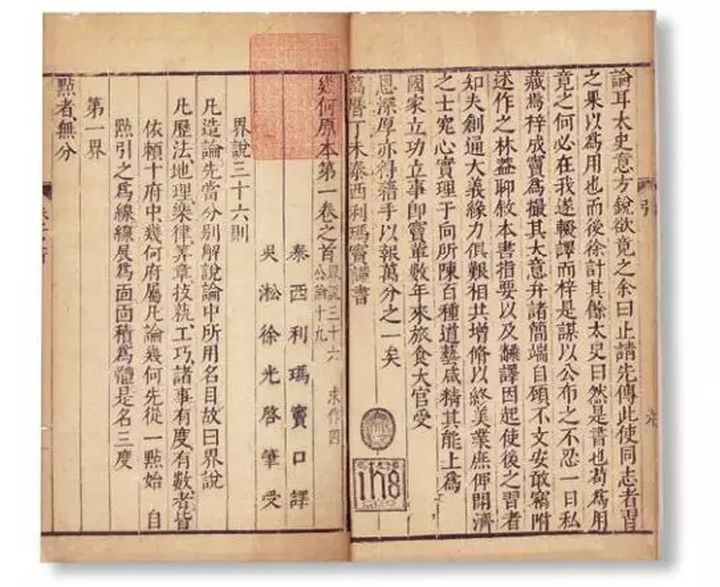 論耳太史意方銳欲竟之余曰止請先傳此使同志者習
之果以為用也而後徐計其餘太史曰然是書也苟為用
竟之何必在我遂輟譯而梓是謀以公布之不忍一日私
藏焉梓成竇為撮其大意弁諸簡端自顧不文安敢竊附
述作之林葢聊敘本書指要以及翻譯因起使後之習者
知夫創通大義緣力俱艱相共增修以終美業庶俾開濟
之士究心實理于向所陳百種道藝咸精其能上為
國家立功立事即竇輩數年來旅食大官受
恩深厚亦得藉手以報萬分之一矣
萬曆丁未泰西利瑪竇謹書
引
六
IHS
幾何原本第一卷之首界說三十六 求作四
公論十九
泰西利瑪竇口譯
吳淞徐光啓筆受
界說三十六則
凡造論先當分別解說論中所用名目故曰界說
凡歷法地理樂律筭章技埶工巧諸事有度有數者皆
依賴十府中幾何府屬凡論幾何先從一點始 自
點引之為線線展為面面積為體是名三度
第一界
點者無分